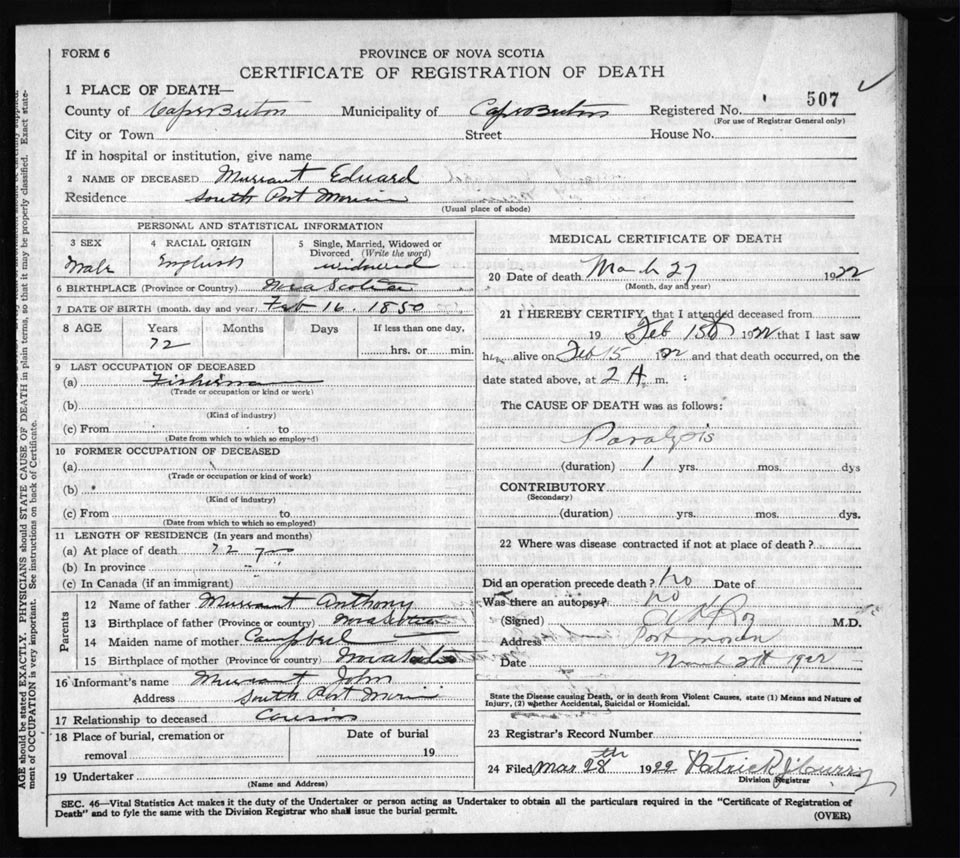 FORM 6
PROVINCE OF NOVA SCOTIA
CERTIFICATE OF REGISTRATION OF DEATH
1 PLACE OF DEATH—
County of Cape Breton Municipality of Cape Breton Registered No. 507
(For use of Registrar General only)
City or Town Street House No.
If in hospital or institution, give name
2 NAME OF DECEASED Murrant Edward
Residence South Port Morien
(Usual place of abode)
PERSONAL AND STATISTICAL INFORMATION
3 SEX
Male
4 RACIAL ORIGIN
English
5 Single, Married, Widowed or
Divorced (Write the word)
widowed
6 BIRTHPLACE (Province or Country) Nova Scotia
7 DATE OF BIRTH (month, day and year) Feb 16. 1850
8 AGE Years Months Days If less than one day,
72
hrs. or min.
9 LAST OCCUPATION OF DECEASED
(a) Fisherman
(Trade or occupation or kind or work)
(b)
(Kind of industry)
(c) From to
(Date from which to which so employed)
10 FORMER OCCUPATION OF DECEASED
(a)
(Trade or occupation or kind of work)
(b)
(Kind of industry)
(c) From to
(Date from which to which so employed)
11 LENGTH OF RESIDENCE (In years and months)
(a) At place of death 72 yrs
(b) In province
(c) In Canada (if an immigrant)
Parents
12 Name of father Murrant Anthony
13 Birthplace of father (Province or country) Nova Scotia
14 Maiden name of mother Campbell
15 Birthplace of mother (Province or country) Nova Scotia
16 Informant's name Murrant John
Address South Port Morien
17 Relationship to deceased Cousin
18 Place of burial, cremation or
removal
Date of burial
19
19 Undertaker
(Name and Address)
MEDICAL CERTIFICATE OF DEATH
20 Date of death March 27 1922
(Month, day and year)
21 I HEREBY CERTIFY, that I attended deceased from
19 Feb 15th 1922 that I last saw
him alive on Feb 15 1922 and that death occurred, on the
date stated above, at 2 A. m.
The CAUSE OF DEATH was as follows:
Paralysis
(duration) 1 yrs. mos. dys
CONTRIBUTORY
(Secondary)
(duration) yrs. mos. dys.
22 Where was disease contracted if not at place of death?
Did an operation precede death? No Date of
Was there an autopsy? No
(Signed) Roy M.D.
Address Port Morien
Date March 1922
State the Disease causing Death, or in death from Violent Causes, state (1) Means and Nature of
Injury, (2) whether Accidental, Suicidal or Homicidal.
23 Registrar's Record Number
24 Filed Mar 28th 1922 Patrick
Division Registrar
SEC. 46—Vital Statistics Act makes it the duty of the Undertaker or person acting as Undertaker to obtain all the particulars required in the "Certificate of Registration of
Death" and to fyle the same with the Division Registrar who shall issue the burial permit.
(OVER)
AGE should be stated EXACTLY. PHYSICIANS should STATE CAUSE OF DEATH in plain terms, so that it may be properly classified. Exact state-
ment of OCCUPATION is very important. See instructions on back of Certificate.